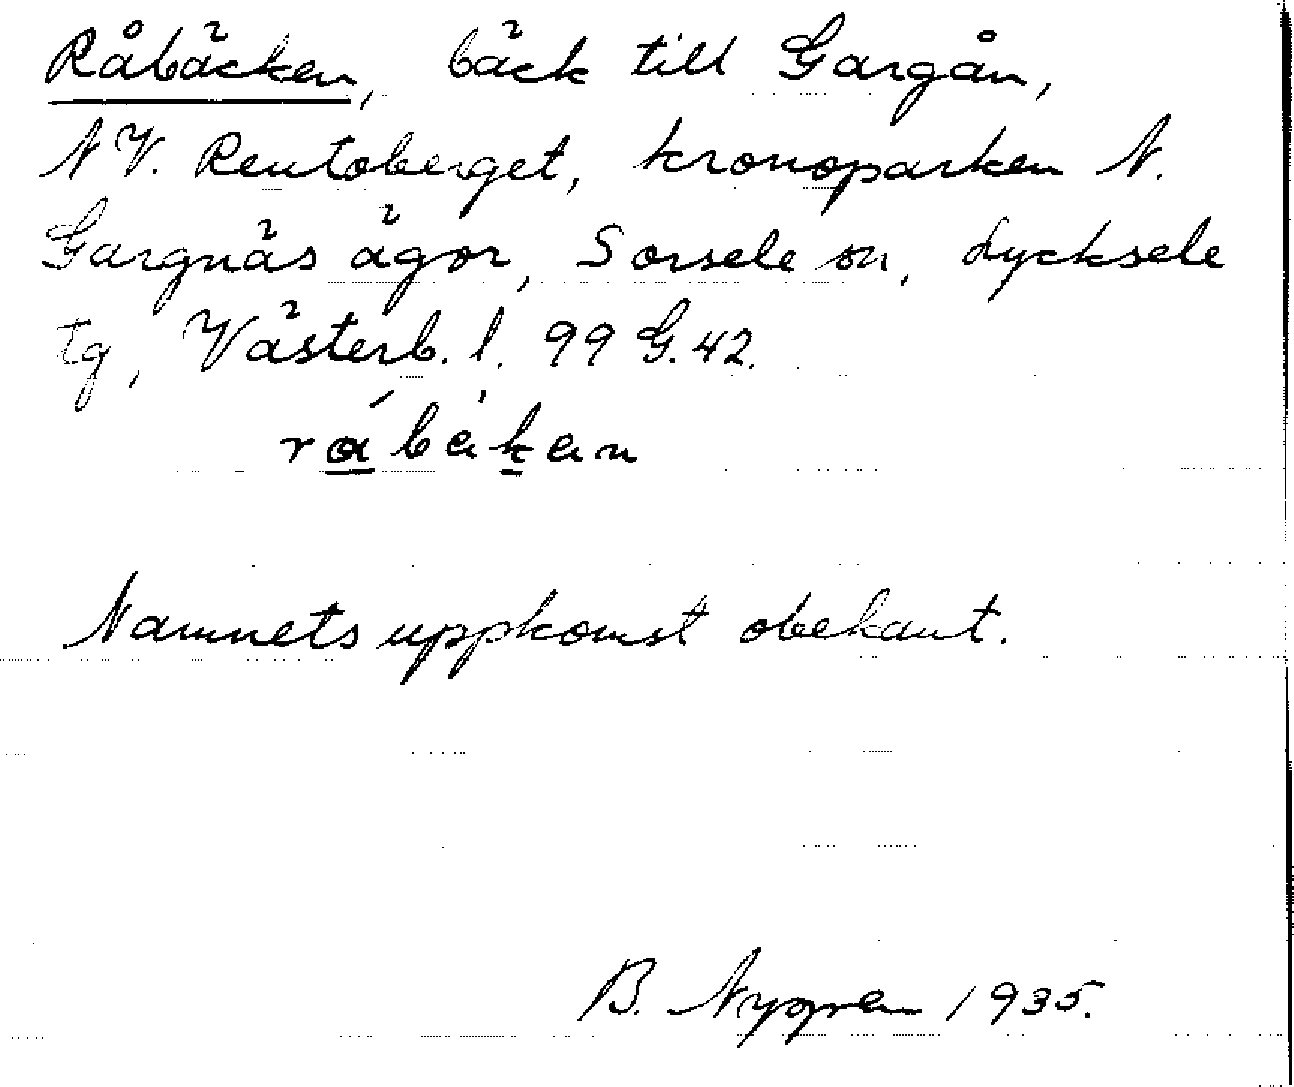 Råbäcken, bäck till Gargån,
NV. Rentoberget, kronoparken N.
Gargnäs ägor, Sorsele sn, Lycksele
tg, Västerb. l. 99 G. 42.
Namnets uppkomst obekant.
B. Nygren 1935.